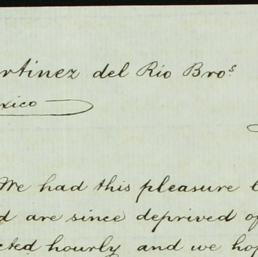 rtinez del Rio Bros
xico
We had this pleasure
d are since deprived of
cted hourly and we hop